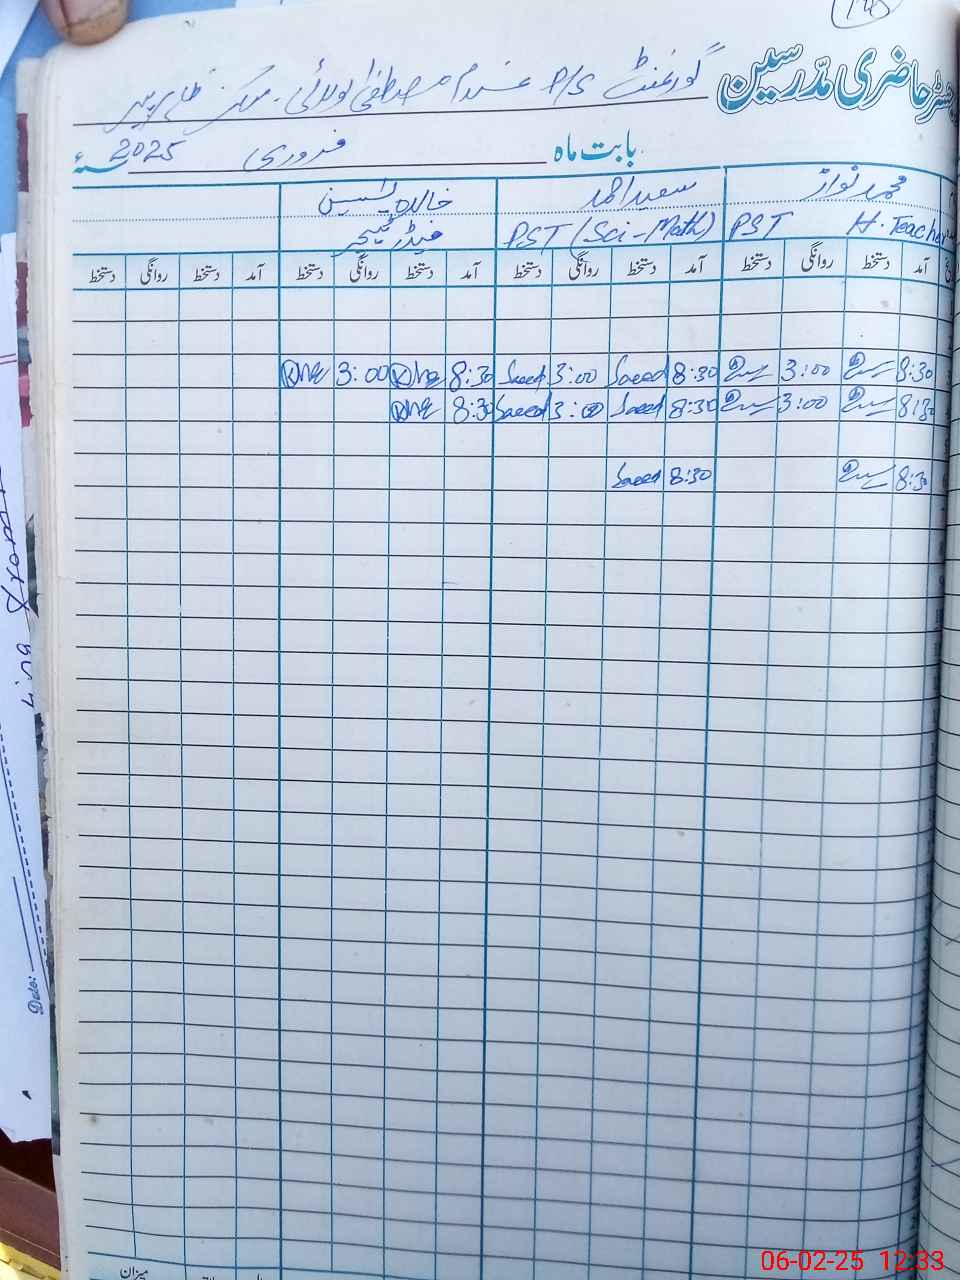 رجسٹر حاضری مدرسین
گورنمنٹ P/S غلام مصطفیٰ
بابت ماہ فروری 2025 سنہ
محمد نواز سعید احمد خالدہ یٰسین
PST H.Teacher PST (Sci-Math) فیڈر ٹیچر
آمد دستخط روانگی دستخط آمد دستخط روانگی دستخط آمد دستخط روانگی دستخط آمد دستخط روانگی دستخط
8:30 3:00 8:30 Saeed 3:00 Saeed 8:30 3:00
8:30 3:00 8:30 Saeed 3:00 Saeed 8:30
8:30 8:30 Saeed
میزان
Date:
06-02-25 12:33